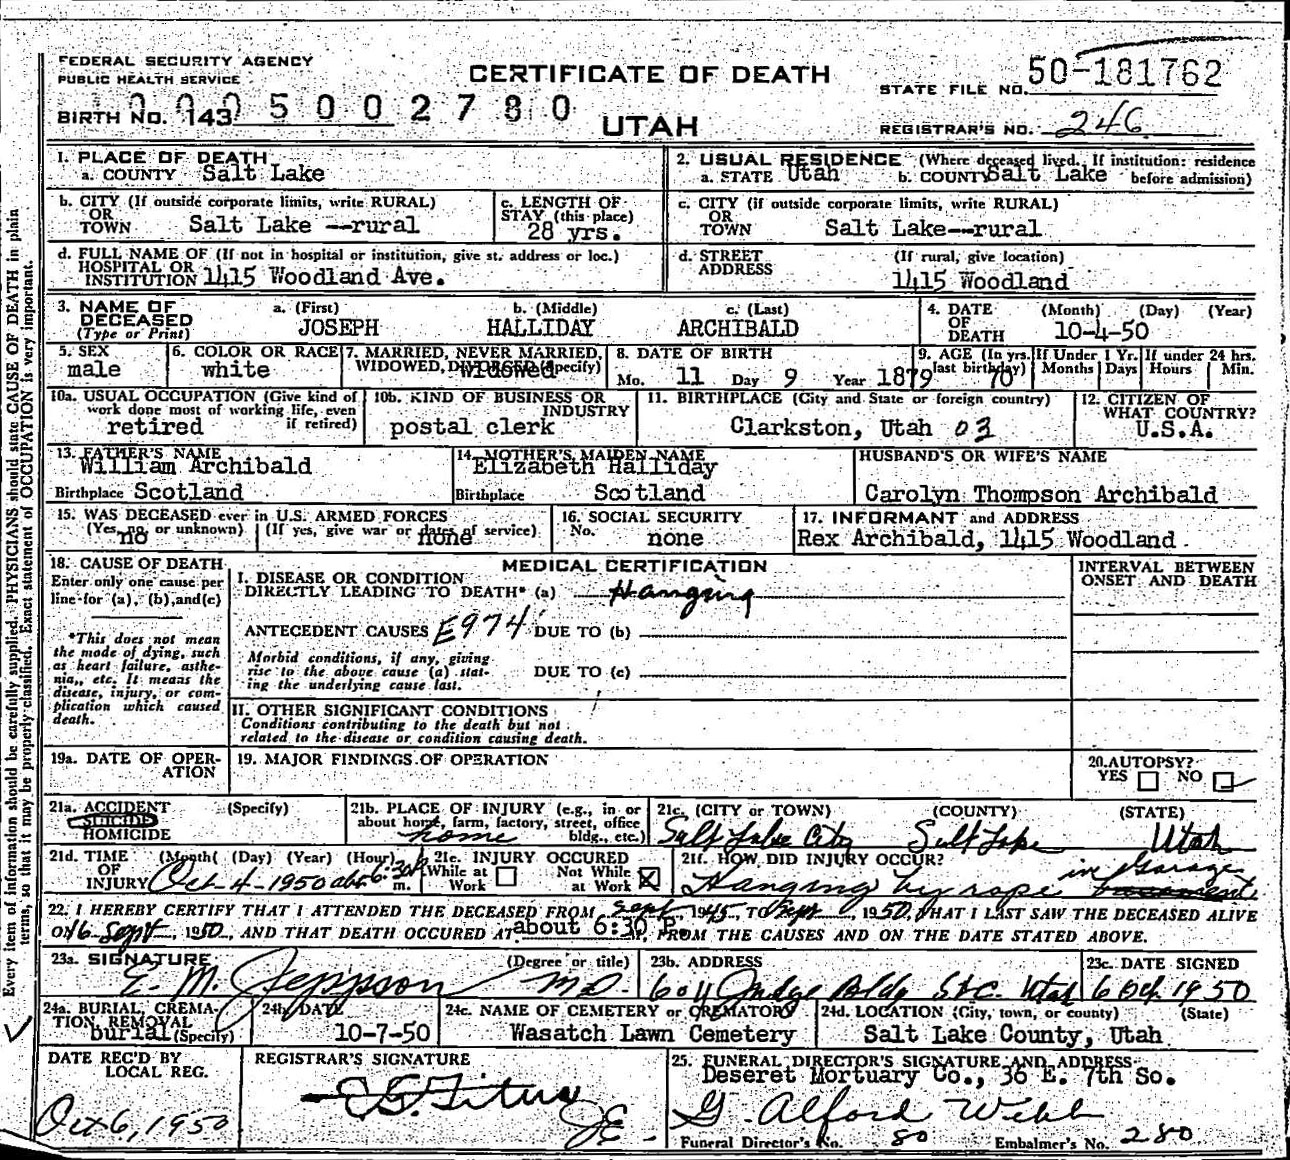 FEDERAL SECURITY AGENCY
PUBLIC HEALTH SERVICE
CERTIFICATE OF DEATH
STATE FILE NO. 50-181762
BIRTH NO. 143 0005002780
UTAH
REGISTRAR'S NO. 246
1. PLACE OF DEATH
a. COUNTY Salt Lake
2. USUAL RESIDENCE (Where deceased lived. If institution: residence before admission)
a. STATE Utah b. COUNTY Salt Lake
b. CITY (If outside corporate limits, write RURAL)
OR
TOWN Salt Lake --rural
c. LENGTH OF
STAY (this place)
28 yrs.
c. CITY (if outside corporate limits, write RURAL)
OR
TOWN Salt Lake--rural
d. FULL NAME OF (If not in hospital or institution, give st. address or loc.)
HOSPITAL OR
INSTITUTION 1415 Woodland Ave.
d. STREET (If rural, give location)
ADDRESS 1415 Woodland
3. NAME OF
DECEASED
(Type or Print)
a. (First) b. (Middle) c. (Last)
JOSEPH HALLIDAY ARCHIBALD
4. DATE (Month) (Day) (Year)
OF
DEATH 10-4-50
5. SEX
male
6. COLOR OR RACE
white
7. MARRIED, NEVER MARRIED,
WIDOWED, DIVORCED (Specify)
widowed
8. DATE OF BIRTH
Mo. 11 Day 9 Year 1879
9. AGE (In yrs. last birthday) 70
If Under 1 Yr. Months Days
If under 24 hrs. Hours Min.
10a. USUAL OCCUPATION (Give kind of
work done most of working life, even
if retired)
retired
10b. KIND OF BUSINESS OR
INDUSTRY
postal clerk
11. BIRTHPLACE (City and State or foreign country)
Clarkston, Utah 03
12. CITIZEN OF
WHAT COUNTRY?
U.S.A.
13. FATHER'S NAME
William Archibald
Birthplace Scotland
14. MOTHER'S MAIDEN NAME
Elizabeth Halliday
Birthplace Scotland
HUSBAND'S OR WIFE'S NAME
Carolyn Thompson Archibald
15. WAS DECEASED ever in U.S. ARMED FORCES
(Yes, no, or unknown) (If yes, give war or dates of service)
no none
16. SOCIAL SECURITY
No. none
17. INFORMANT and ADDRESS
Rex Archibald, 1415 Woodland
18. CAUSE OF DEATH
Enter only one cause per
line for (a), (b), and (c)
*This does not mean
the mode of dying, such
as heart failure, asthe-
nia, etc. It means the
disease, injury, or com-
plication which caused
death.
MEDICAL CERTIFICATION
INTERVAL BETWEEN
ONSET AND DEATH
I. DISEASE OR CONDITION
DIRECTLY LEADING TO DEATH* (a) Hanging
ANTECEDENT CAUSES E974 DUE TO (b)
Morbid conditions, if any, giving
rise to the above cause (a) stat-
ing the underlying cause last.
DUE TO (c)
II. OTHER SIGNIFICANT CONDITIONS
Conditions contributing to the death but not
related to the disease or condition causing death.
19a. DATE OF OPER-
ATION
19. MAJOR FINDINGS OF OPERATION
20. AUTOPSY?
YES NO
21a. ACCIDENT (Specify)
SUICIDE
HOMICIDE
21b. PLACE OF INJURY (e.g., in or
about home, farm, factory, street, office
bldg., etc.)
home
21c. (CITY or TOWN) (COUNTY) (STATE)
Salt Lake City Salt Lake Utah
21d. TIME (Month) (Day) (Year) (Hour)
OF
INJURY Oct-4-1950 abt 6:30 P m.
21e. INJURY OCCURED
While at Work Not While at Work
21f. HOW DID INJURY OCCUR?
Hanging by rope in Garage
22. I HEREBY CERTIFY THAT I ATTENDED THE DECEASED FROM Sept, 1945, TO Sept, 1950, THAT I LAST SAW THE DECEASED ALIVE
ON 16 Sept, 1950, AND THAT DEATH OCCURED AT about 6:30 P. M, FROM THE CAUSES AND ON THE DATE STATED ABOVE.
23a. SIGNATURE (Degree or title)
E. M. Jeppson M.D.
23b. ADDRESS
604 Judge Bldg SLC. Utah
23c. DATE SIGNED
6 Oct. 1950
24a. BURIAL, CREMA-
TION, REMOVAL
burial (Specify)
24b. DATE
10-7-50
24c. NAME OF CEMETERY or CREMATORY
Wasatch Lawn Cemetery
24d. LOCATION (City, town, or county) (State)
Salt Lake County, Utah
DATE REC'D BY
LOCAL REG.
Oct 6, 1950
REGISTRAR'S SIGNATURE
25. FUNERAL DIRECTOR'S SIGNATURE AND ADDRESS
Deseret Mortuary Co., 36 E. 7th So.
G. Alford Webb
Funeral Director's No. 80 Embalmer's No. 280
Every item of information should be carefully supplied. PHYSICIANS should state CAUSE OF DEATH in plain
terms, so that it may be properly classified. Exact statement of OCCUPATION is very important.